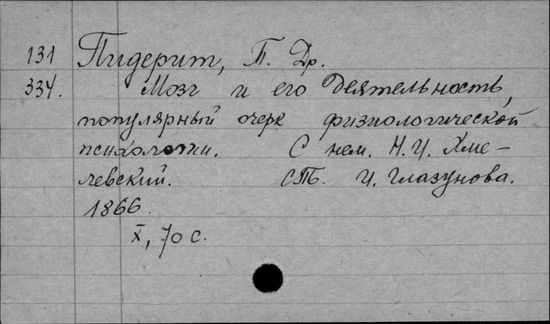 131 Пидерит, Т. Др.
334. Мозг и его деятельность,
популярный очерк физиологической
психологии. С нем. Н. И. Хме-
левский. СПБ. И. Глазунова.
1866.
X, 70 с.